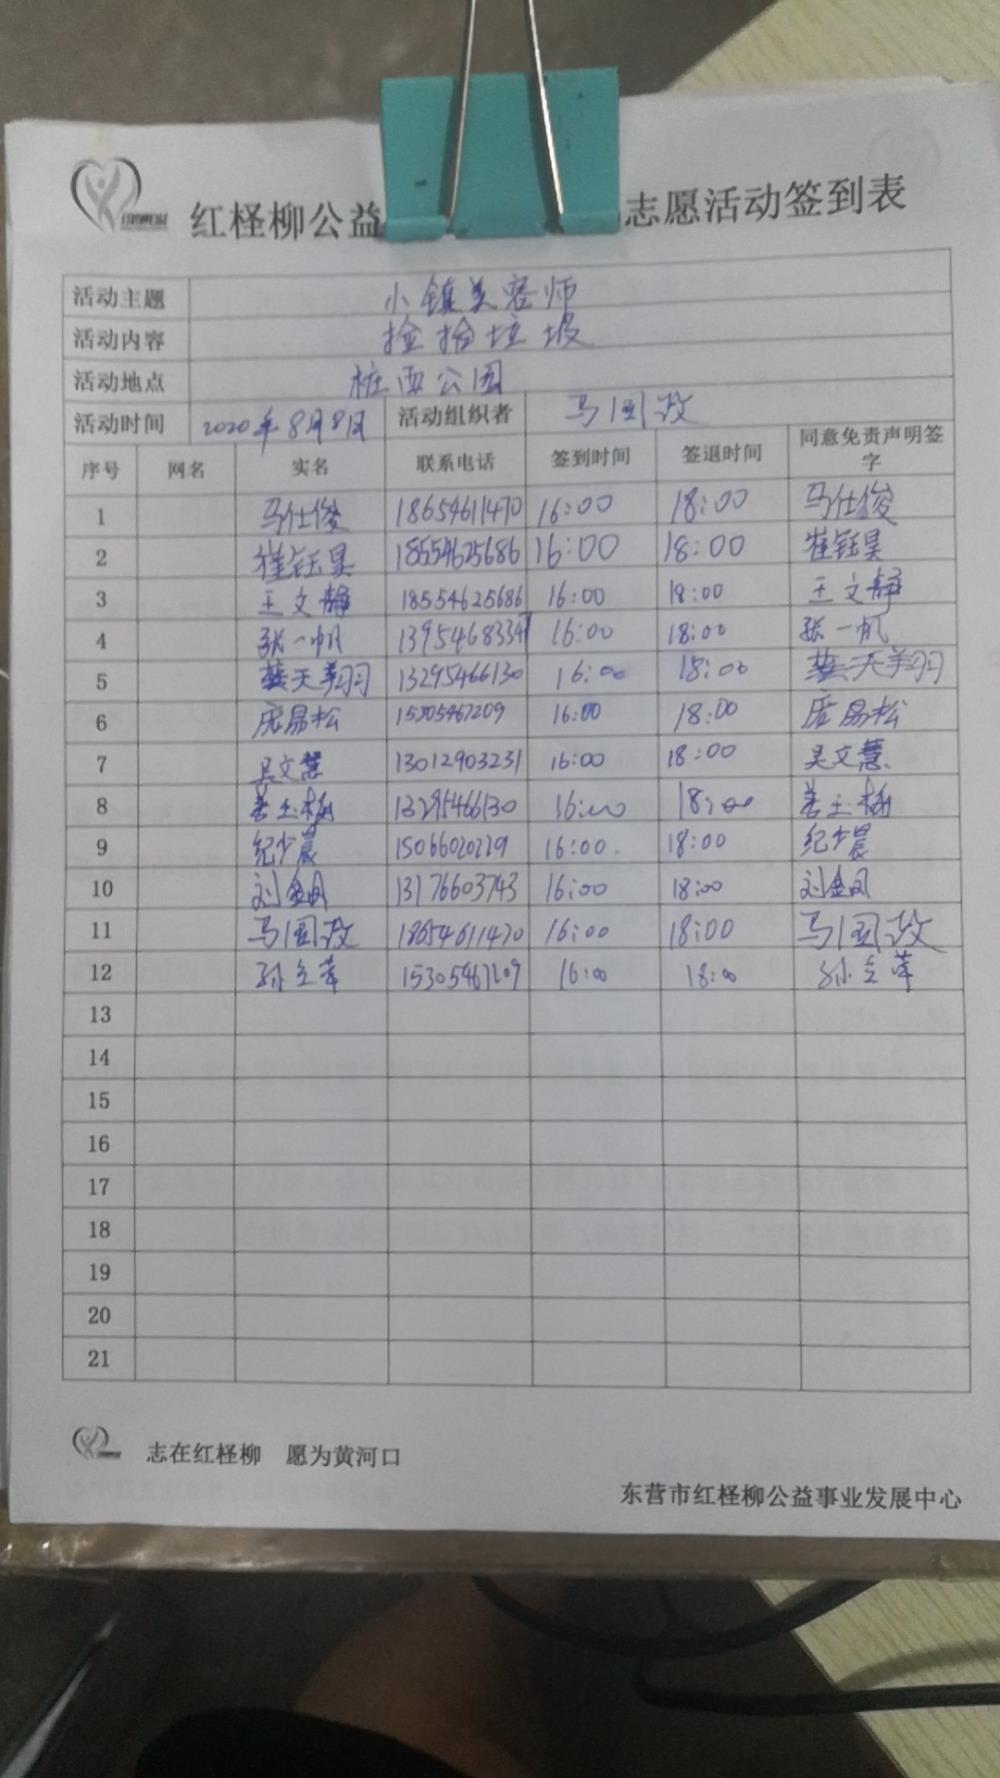 红柽柳公益 志愿活动签到表
活动主题 小镇美容师
活动内容 捡拾垃圾
活动地点 桩西公园
活动时间 2020年8月8日 活动组织者 马国政
序号 网名 实名 联系电话 签到时间 签退时间 同意免责声明签字
1 马仕俊 18654611470 16:00 18:00 马仕俊
2 崔钰昊 18554625686 16:00 18:00 崔钰昊
3 王文静 18554625686 16:00 18:00 王文静
4 张一帆 16:00 18:00 张一帆
5 龚天翔 13295466130 16:00 18:00 龚天翔
6 庞易松 15305467209 16:00 18:00 庞易松
7 吴文慧 13012903231 16:00 18:00 吴文慧
8 13295466130 16:00 18:00
9 纪少晨 15066020229 16:00 18:00 纪少晨
10 刘金凤 13176603743 16:00 18:00 刘金凤
11 马国政 18654611470 16:00 18:00 马国政
12 15305467209 16:00 18:00
13
14
15
16
17
18
19
20
21
志在红柽柳 愿为黄河口
东营市红柽柳公益事业发展中心